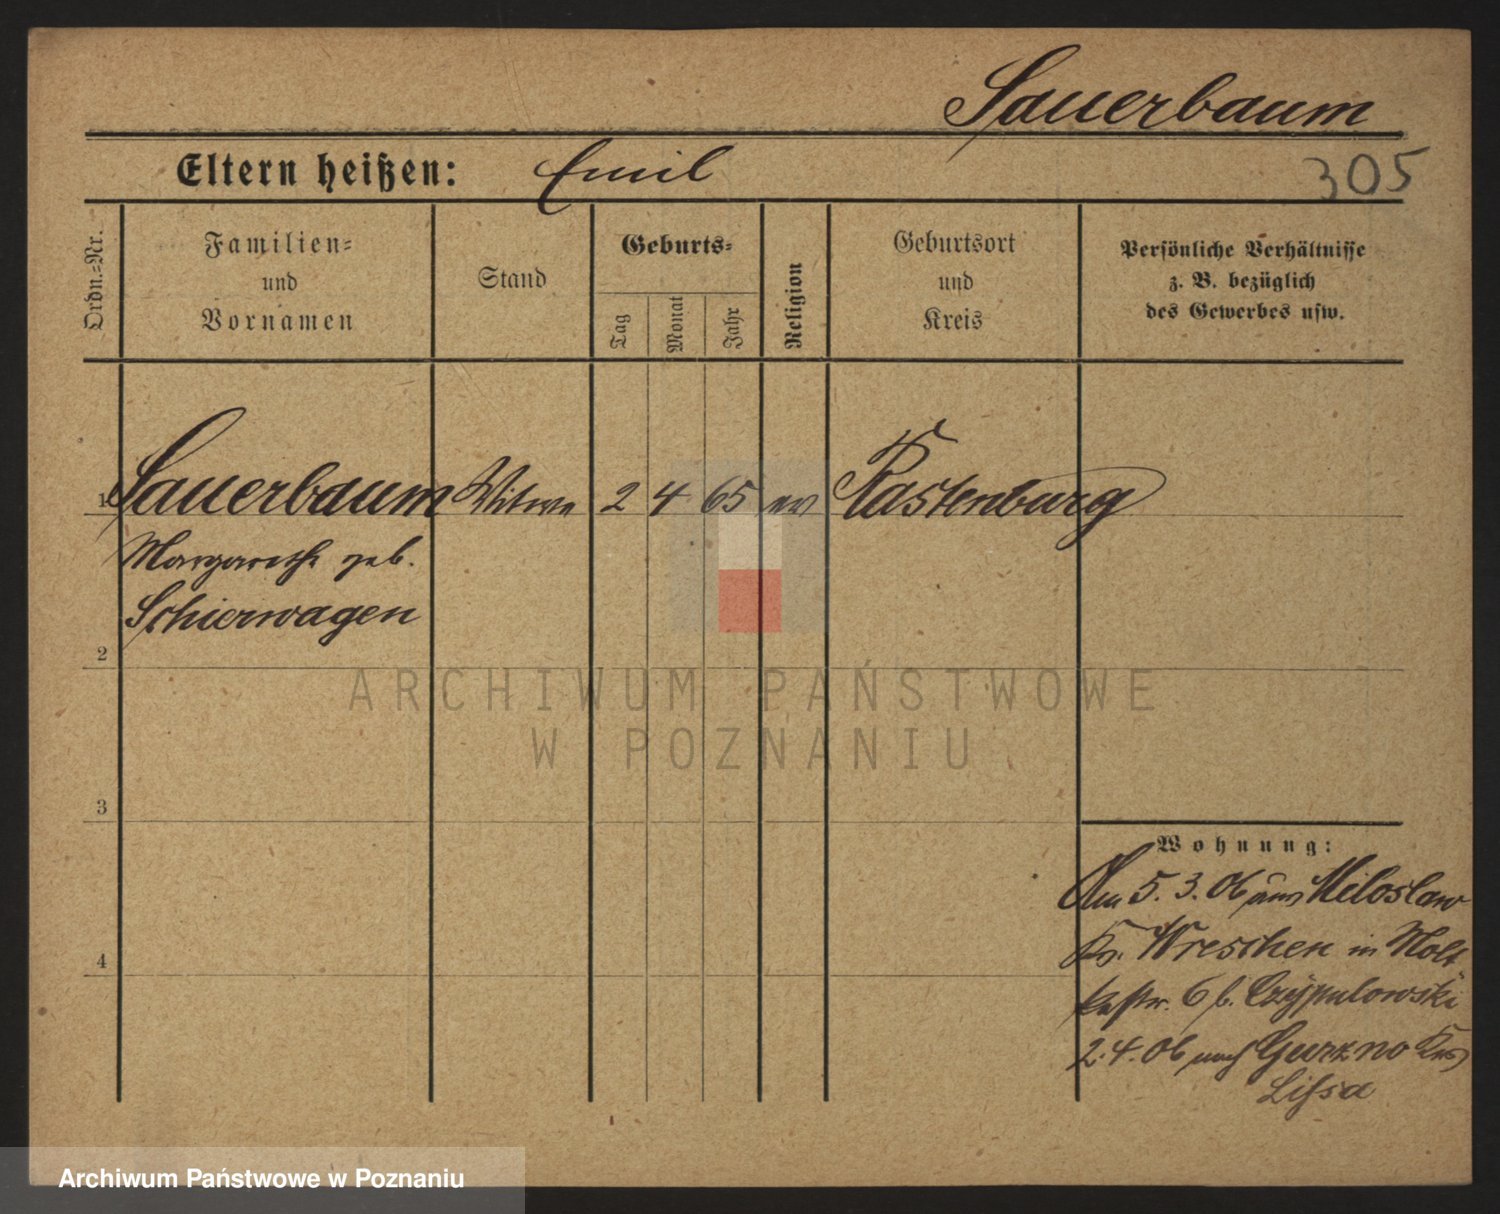 Sauerbaum
Eltern heißen: Emil
305
Ordn.-Nr.
Familien-
und
Vornamen
Stand
Geburts-
Tag
Monat
Jahr
Religion
Geburtsort
und
Kreis
Persönliche Verhältnisse
z. B. bezüglich
des Gewerbes usw.
1 Sauerbaum Witwe 2 4 65 ev Rastenburg
Margarethe geb.
Schierwagen
2
3
4
Wohnung:
Am 5.3.06 aus Miloslaw
Kr. Wreschen in Molt
kestr. 6 b. Czypulowski
2.4.06 nach Gurzno Krs
Lissa
ARCHIWUM PAŃSTWOWE
W POZNANIU
Archiwum Państwowe w Poznaniu